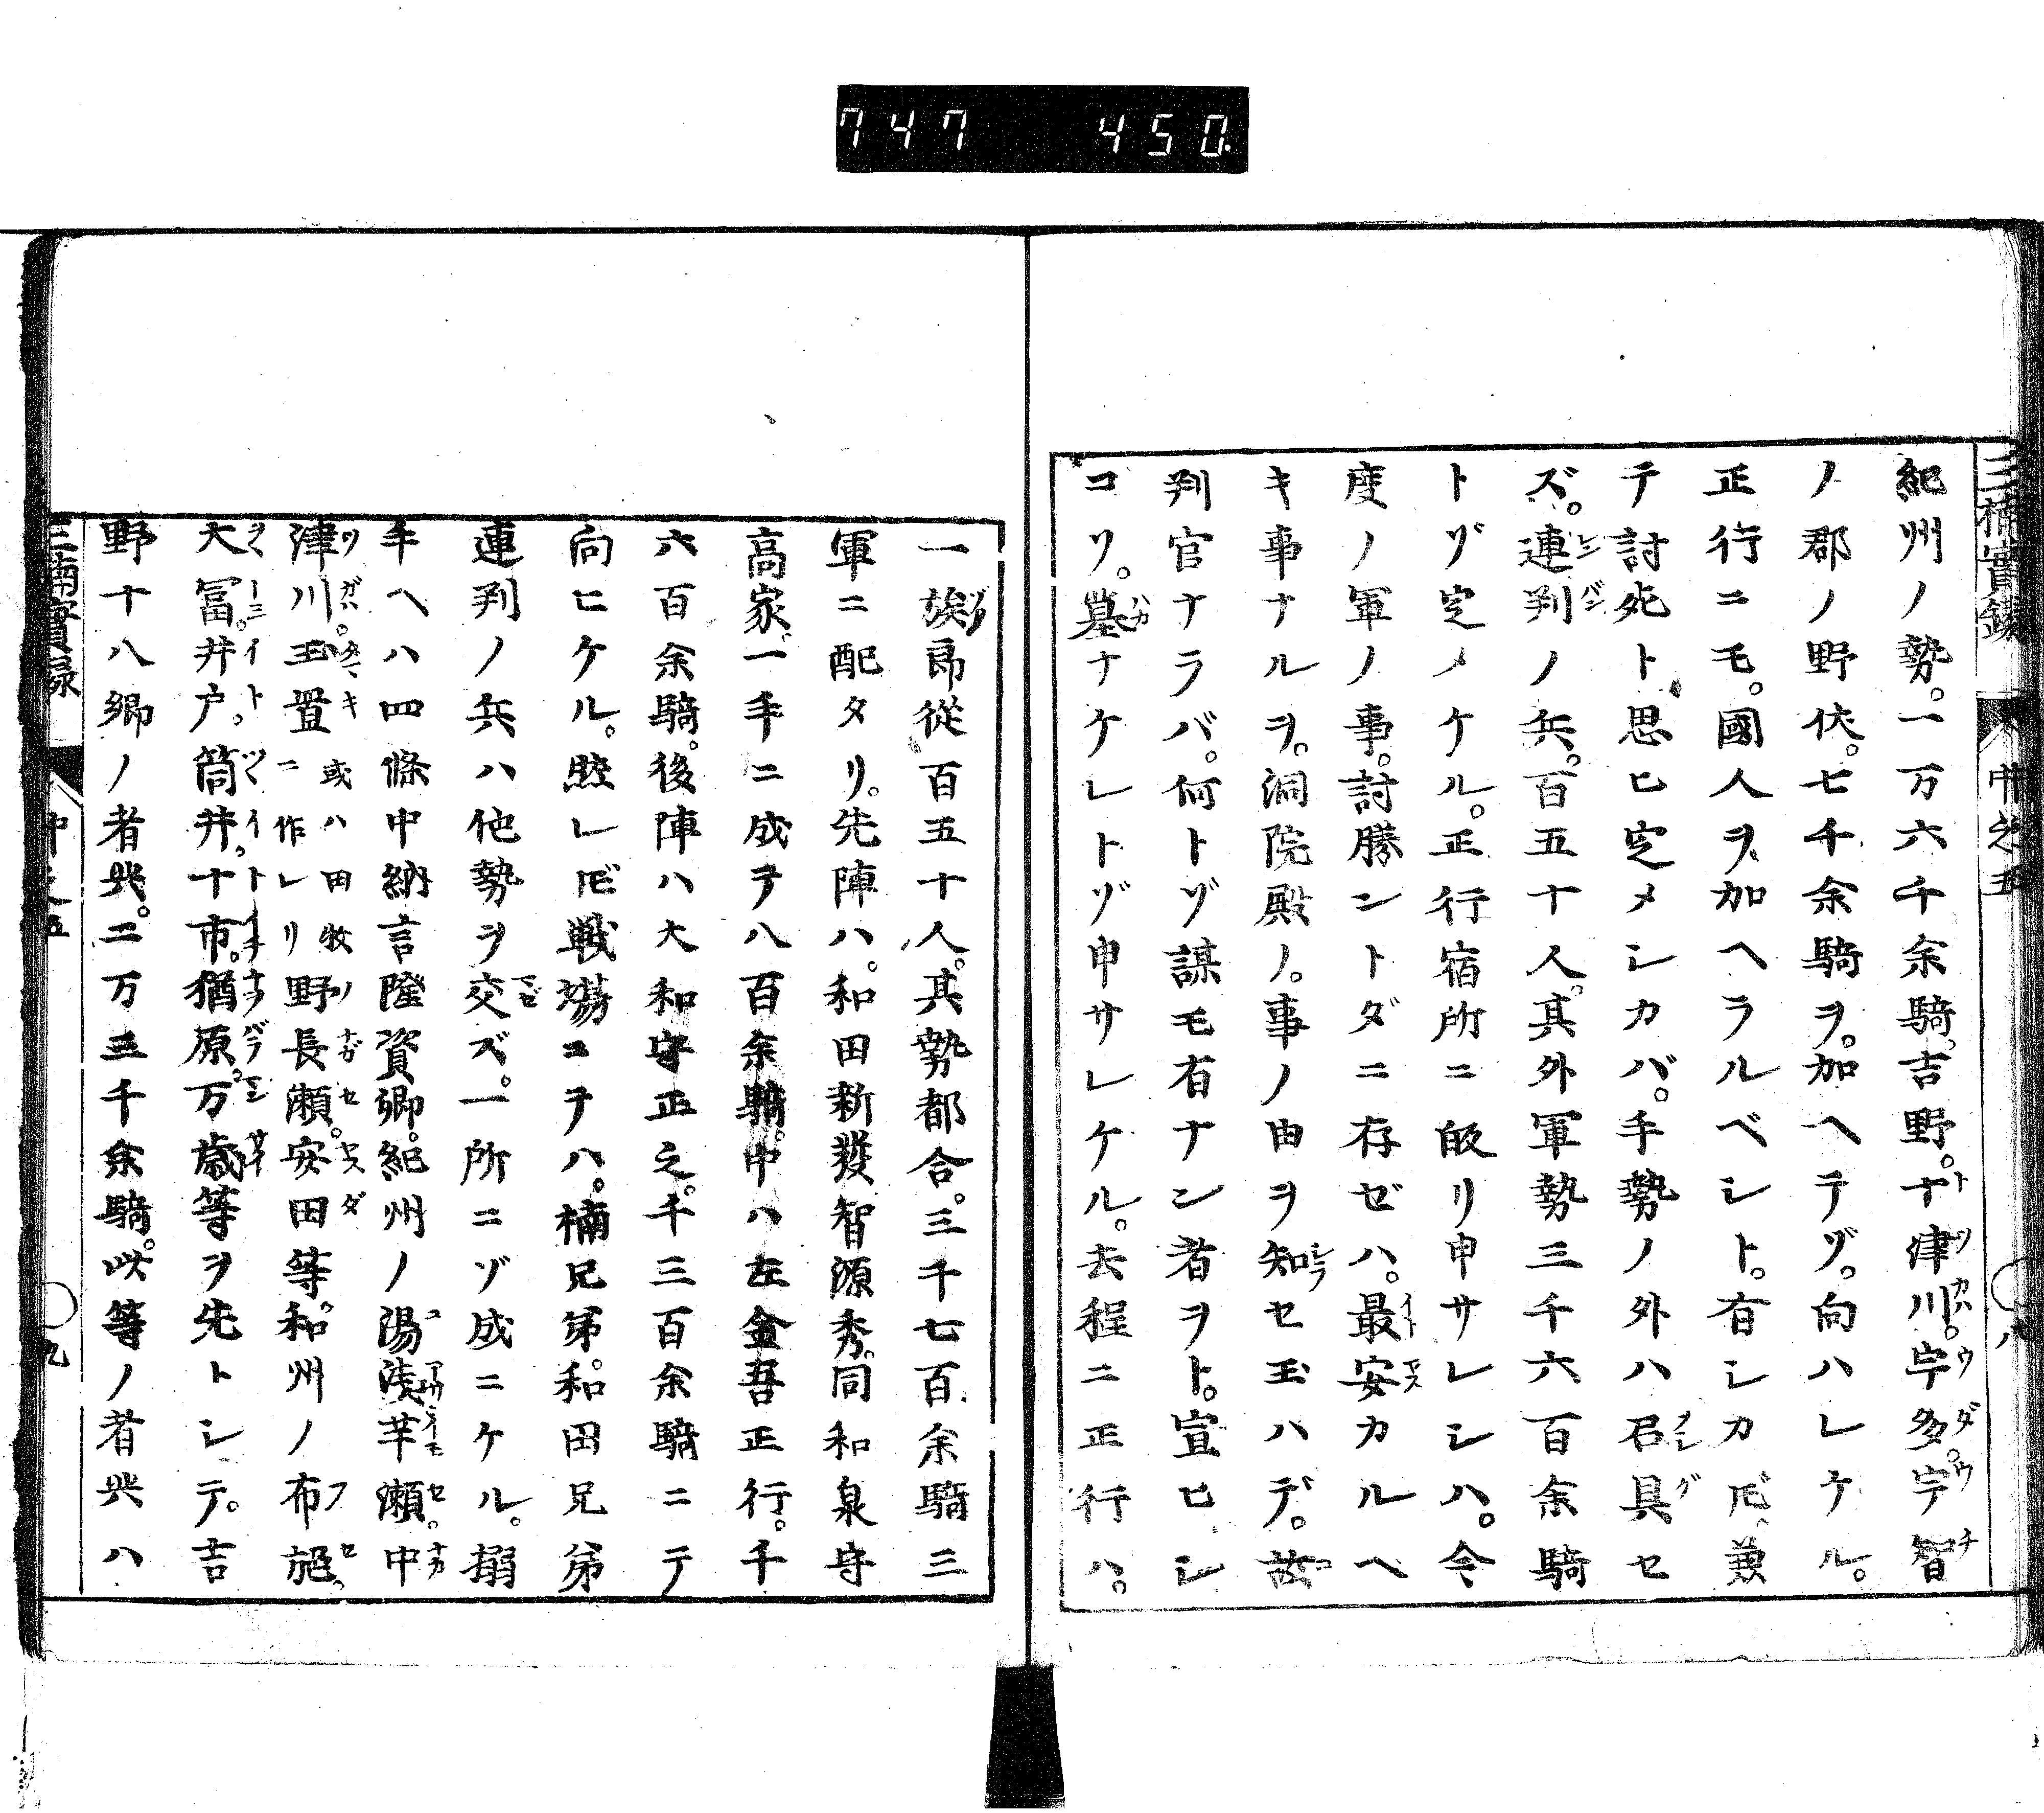 747 450
三楠實録 中之五 八
紀州ノ勢。一万六千余騎。吉野。十津川。宇多。宇智
ノ郡ノ野伏。七千余騎ヲ。加ヘテゾ。向ハレケル。
正行ニモ。國人ヲ加ヘラルベシト。有シカ𪜈兼
テ討死ト思ヒ定メシカバ。手勢ノ外ハ召具セ
ズ。連判ノ兵。百五十人。其外軍勢三千六百余騎
トゾ定メケル。正行宿所ニ皈リ申サレシハ。今
度ノ軍ノ事。討勝ントダニ存ゼハ。最安カルヘ
キ事ナルヲ。洞院殿ノ。事ノ由ヲ知セ玉ハデ。故
判官ナラバ。何トゾ謀モ有ナン者ヲト。宣ヒシ
コリ。墓ナケレトゾ申サレケル。去程ニ正行ハ。
一族郎從百五十人。其勢都合。三千七百余騎三
軍ニ配タリ。先陣ハ。和田新發智源秀。同和泉守
高家。一手ニ成ヲ八百余騎。中ハ左金吾正行。千
六百余騎。後陣ハ大和守正之。千三百余騎ニテ
向ヒケル。然レ𪜈戦場コヲハ。楠兄弟。和田兄弟
連判ノ兵ハ他勢ヲ交ズ。一所ニゾ成ニケル。搦
手ヘハ四條中納言隆資卿。紀州ノ湯淺芋瀬。中
津川。玉置或ハ田牧ニ作レリ野長瀬。安田等。和州ノ布施。
大冨。井戸。筒井。十市。楢原。万歳等ヲ先トシテ。吉
野十八郷ノ者共。二万三千余騎。此等ノ者共ハ
三楠實録 中之五 九